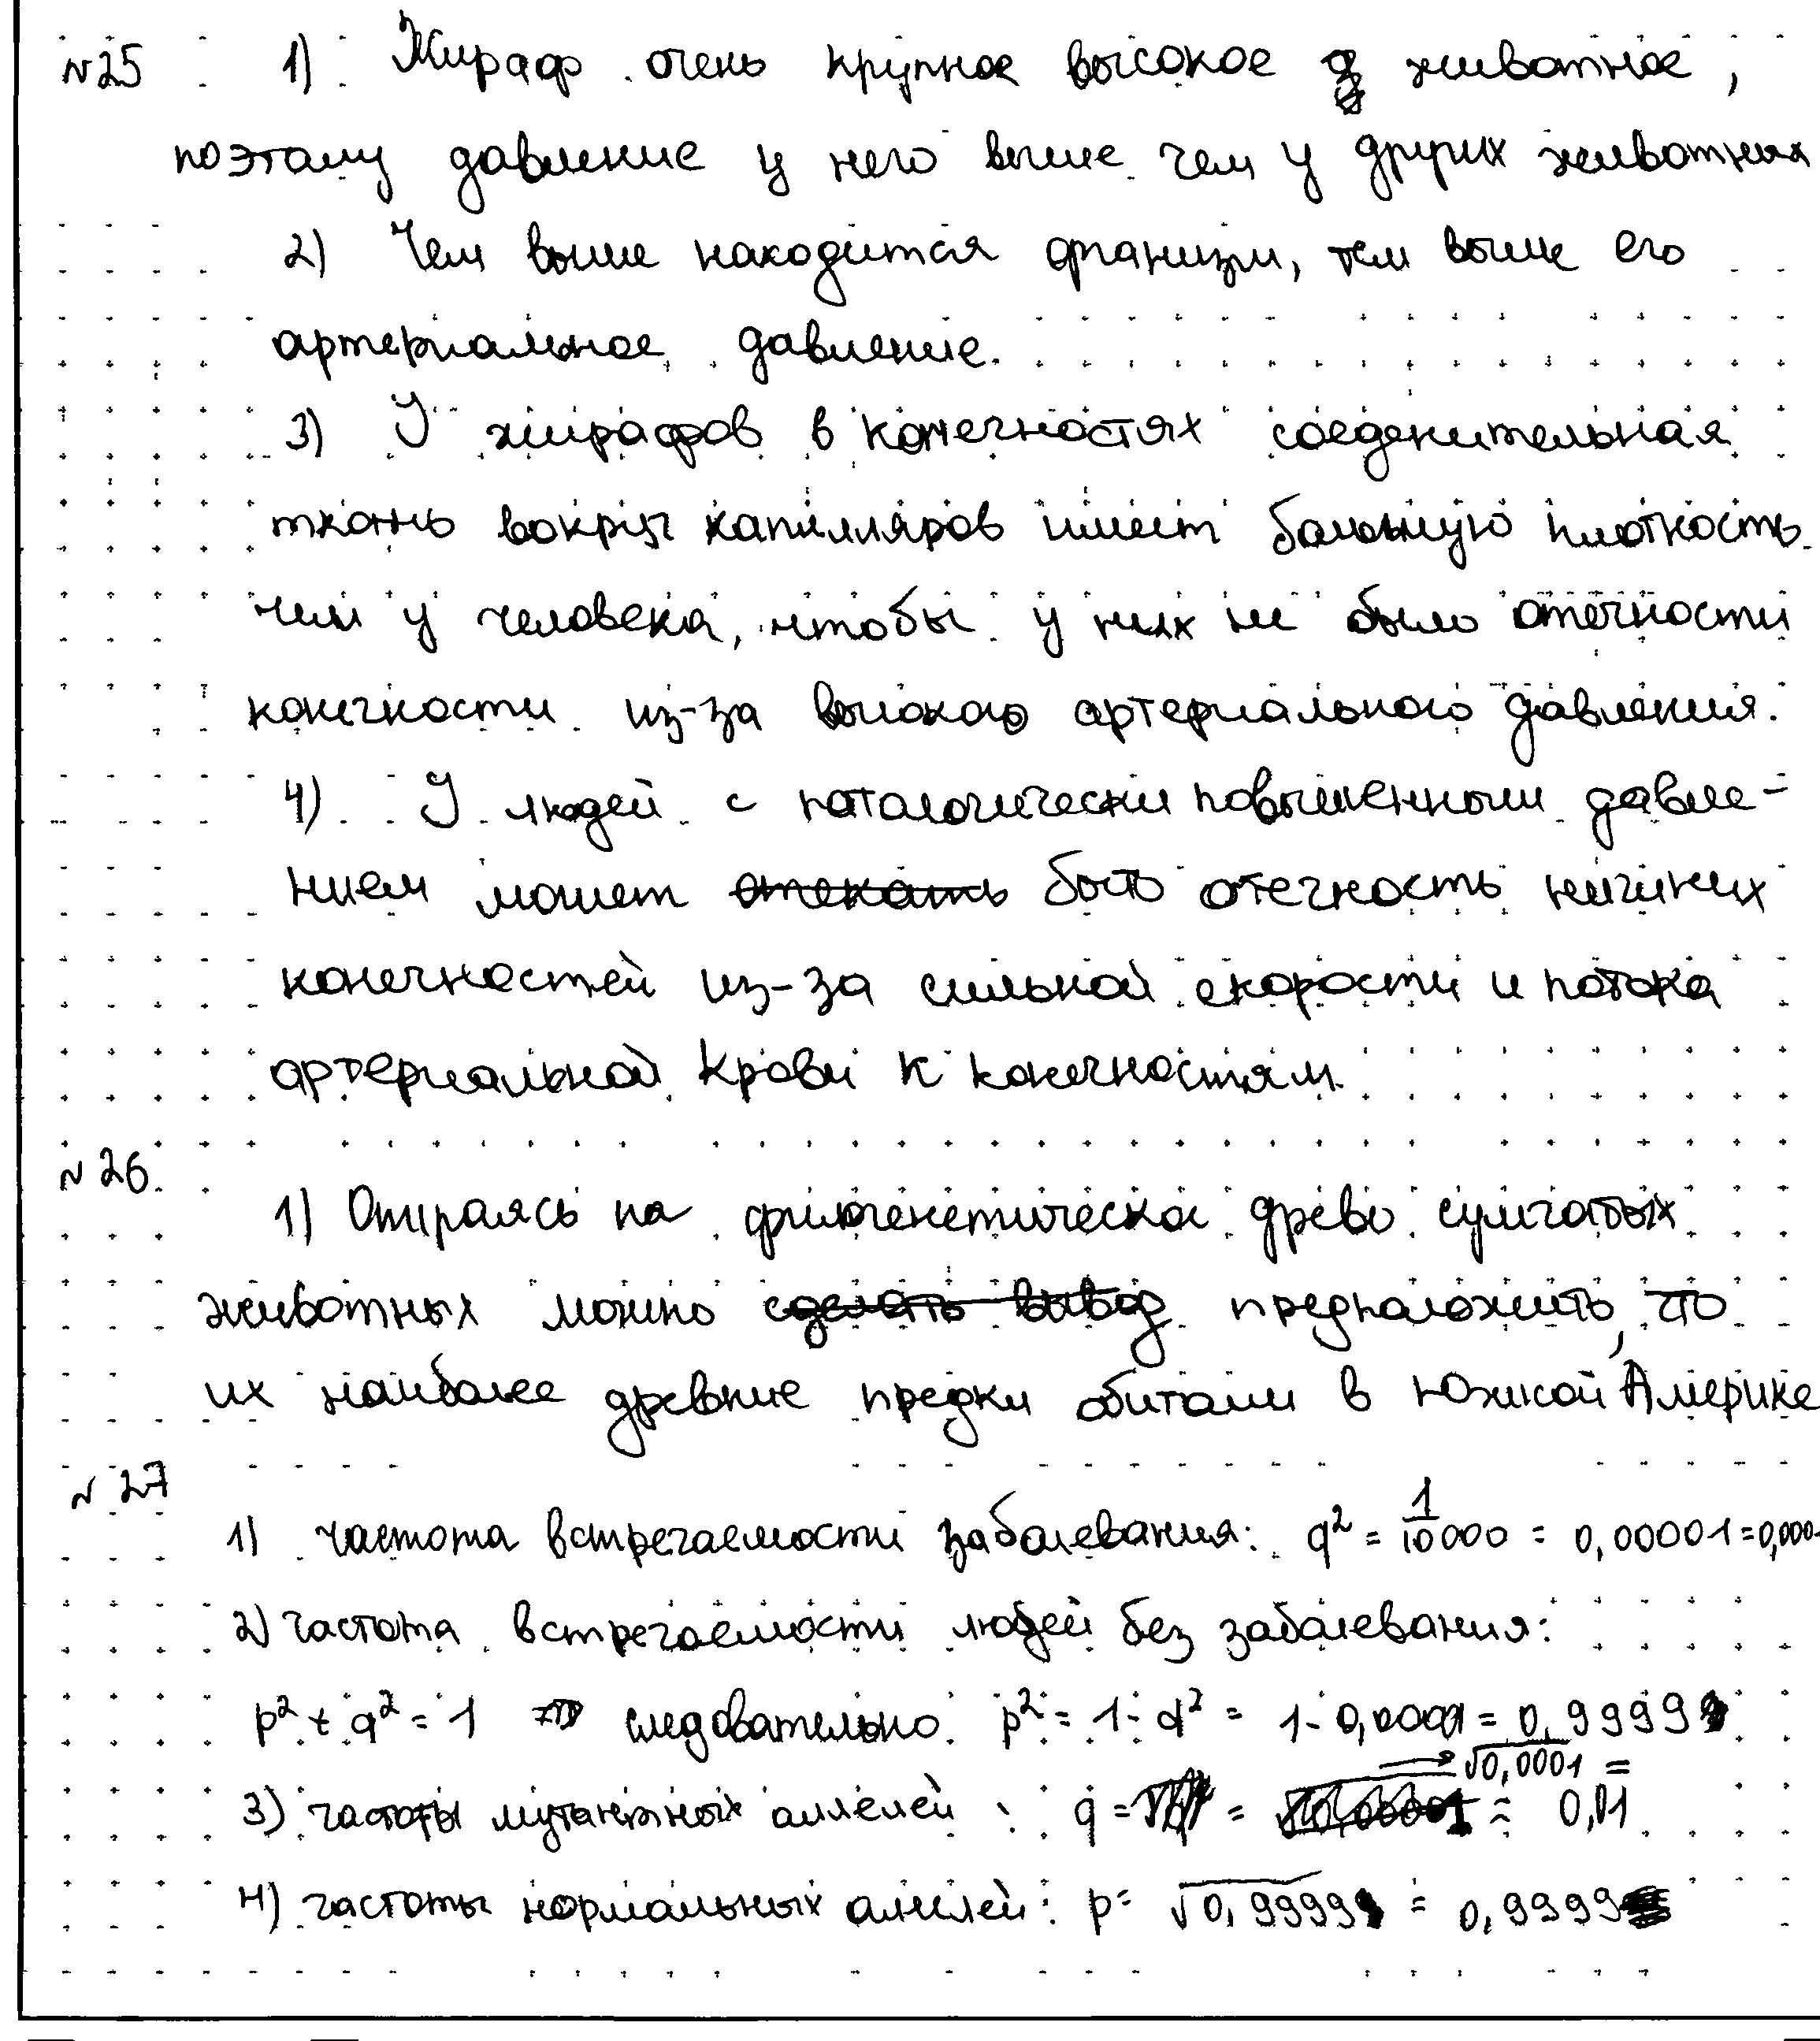 №25 1) Жираф очень крупное высокое животное,
поэтому давление у него выше чем у других животных
2) Чем выше находится организм, тем выше его
артериальное давление.
3) У жирафов в конечностях соеденительная
ткань вокруг капилляров имеет большую плотность
чем у человека, чтобы у них не было отечности
конечности из-за высокого артериального давления.
4) У людей с патологически повышенным давле-
нием может отекать быть отечность нижних
конечностей из-за сильной скорости и потока
артериальной крови к конечностям.
№26
1) Опираясь на филогенетическое древо сумчатых
животных можно сделать вывод предположить, что
их наиболее древние предки обитали в Южной Америке
№27
1) частота встречаемости заболевания: q² = 1/10000 = 0,00001 = 0,0001
2) частота встречаемости людей без заболевания:
p² + q² = 1 следовательно p² = 1 - q² = 1 - 0,0001 = 0,9999
3) частоты мутантных аллелей: q = √0,0001 = 0,01
4) частоты нормальных аллелей: p = √0,9999 = 0,9999